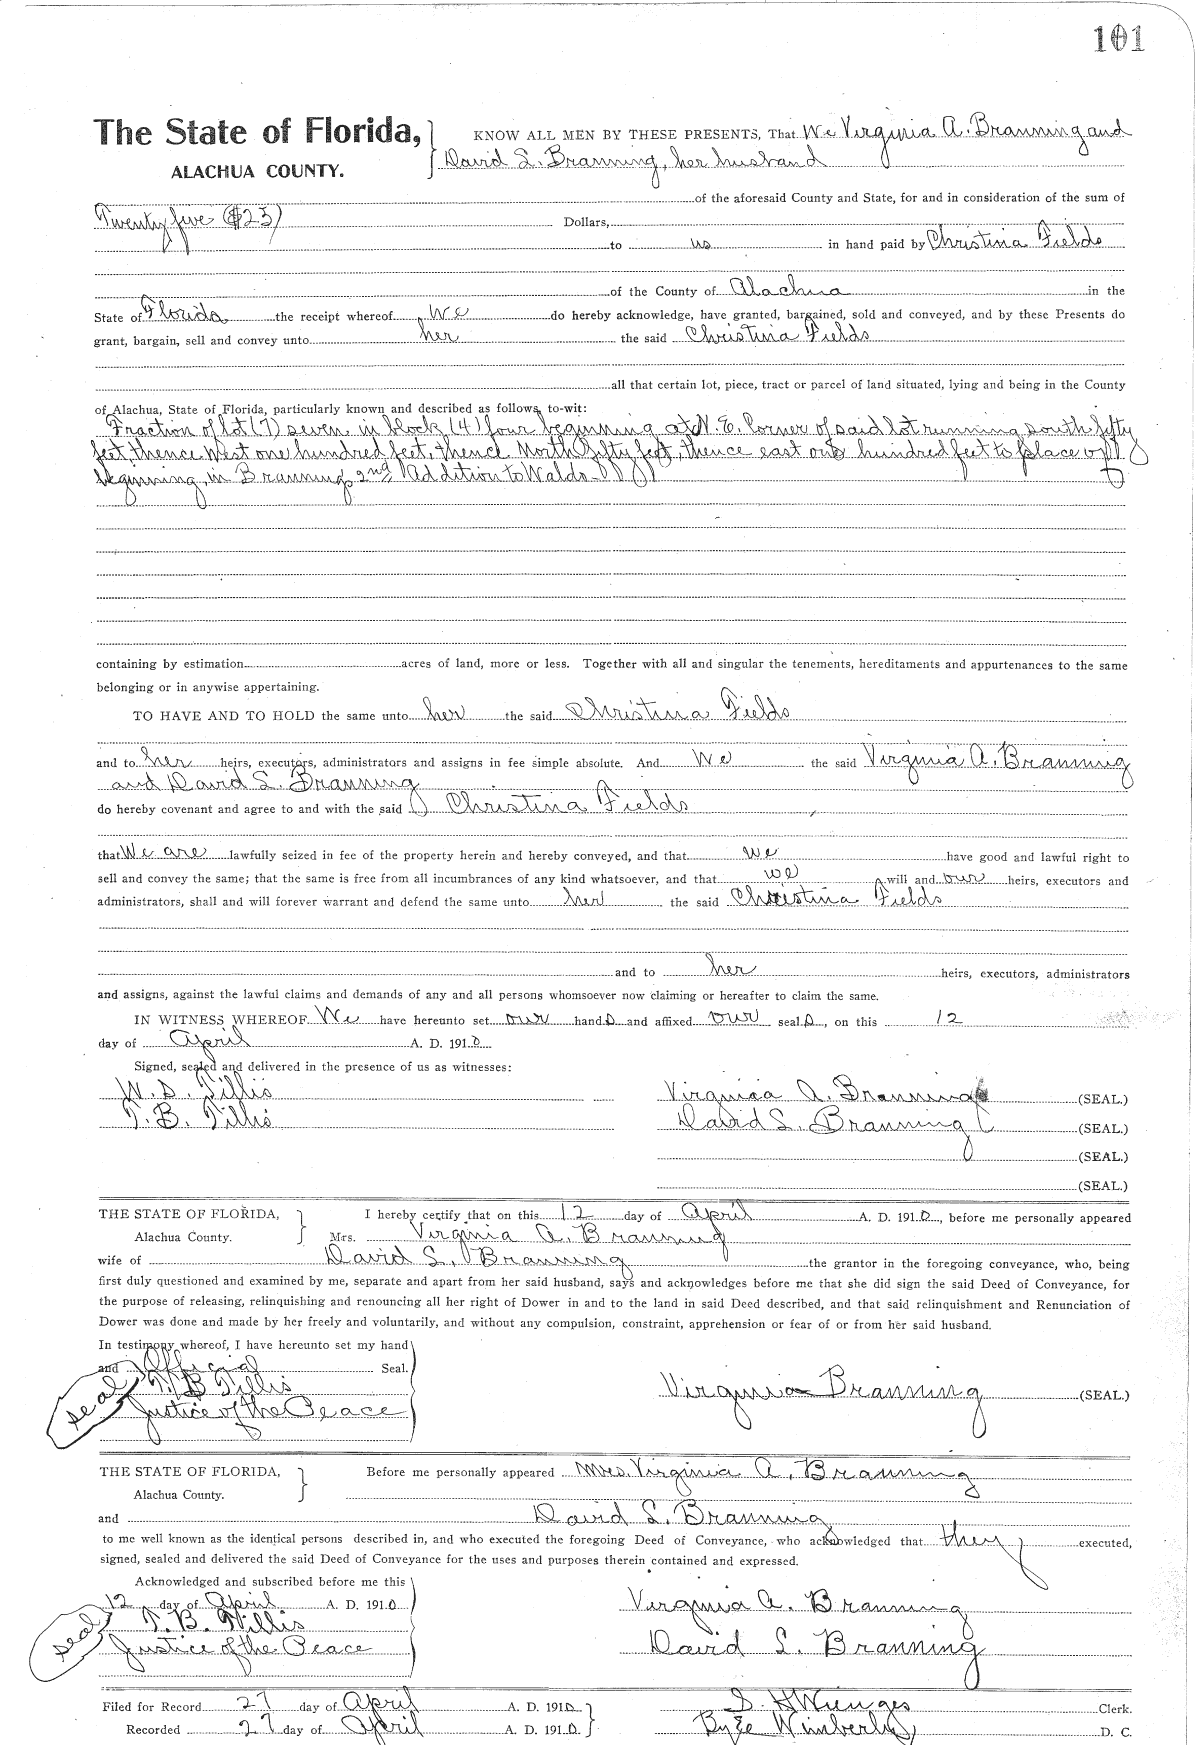 101
The State of Florida, KNOW ALL MEN BY THESE PRESENTS, That We Virginia A. Branning and
ALACHUA COUNTY. David L. Branning, her husband
of the aforesaid County and State, for and in consideration of the sum of
Twenty five ($25) Dollars,
to us in hand paid by Christina Fields
of the County of Alachua in the
State of Florida the receipt whereof We do hereby acknowledge, have granted, bargained, sold and conveyed, and by these Presents do
grant, bargain, sell and convey unto her the said Christina Fields
all that certain lot, piece, tract or parcel of land situated, lying and being in the County
of Alachua, State of Florida, particularly known and described as follows, to-wit:
Fraction of lot (7) seven in block (4) four beginning at N. E. Corner of said lot running south fifty
feet, thence West one hundred feet, thence North fifty feet, thence east one hundred feet to place of
beginning, in Brannings 2nd Addition to Waldo
containing by estimation acres of land, more or less. Together with all and singular the tenements, hereditaments and appurtenances to the same
belonging or in anywise appertaining.
TO HAVE AND TO HOLD the same unto her the said Christina Fields
and to her heirs, executors, administrators and assigns in fee simple absolute. And We the said Virginia A. Branning
and David L. Branning
do hereby covenant and agree to and with the said Christina Fields
that We are lawfully seized in fee of the property herein and hereby conveyed, and that we have good and lawful right to
sell and convey the same; that the same is free from all incumbrances of any kind whatsoever, and that we will and our heirs, executors and
administrators, shall and will forever warrant and defend the same unto her the said Christina Fields
and to her heirs, executors, administrators
and assigns, against the lawful claims and demands of any and all persons whomsoever now claiming or hereafter to claim the same.
IN WITNESS WHEREOF We have hereunto set our hands and affixed our seals, on this 12
day of April A. D. 1910
Signed, sealed and delivered in the presence of us as witnesses:
W. D. Tillis Virginia A. Branning (SEAL.)
T. B. Tillis David L. Branning (SEAL.)
(SEAL.)
(SEAL.)
THE STATE OF FLORIDA, I hereby certify that on this 12 day of April A. D. 1910, before me personally appeared
Alachua County. Mrs. Virginia A. Branning
wife of David L. Branning the grantor in the foregoing conveyance, who, being
first duly questioned and examined by me, separate and apart from her said husband, says and acknowledges before me that she did sign the said Deed of Conveyance, for
the purpose of releasing, relinquishing and renouncing all her right of Dower in and to the land in said Deed described, and that said relinquishment and Renunciation of
Dower was done and made by her freely and voluntarily, and without any compulsion, constraint, apprehension or fear of or from her said husband.
In testimony whereof, I have hereunto set my hand
and Official Seal.
seal T. B Tillis Virginia Branning (SEAL.)
Justice of the Peace
THE STATE OF FLORIDA, Before me personally appeared Mrs. Virginia A. Branning
Alachua County.
and David L. Branning
to me well known as the identical persons described in, and who executed the foregoing Deed of Conveyance, who acknowledged that they executed,
signed, sealed and delivered the said Deed of Conveyance for the uses and purposes therein contained and expressed.
Acknowledged and subscribed before me this
12 day of April A. D. 1910 Virginia A. Branning
seal T. B. Tillis
Justice of the Peace David L. Branning
Filed for Record 27 day of April A. D. 1910 S. H Wienges Clerk.
Recorded 27 day of April A. D. 1910. Wimberly D. C.